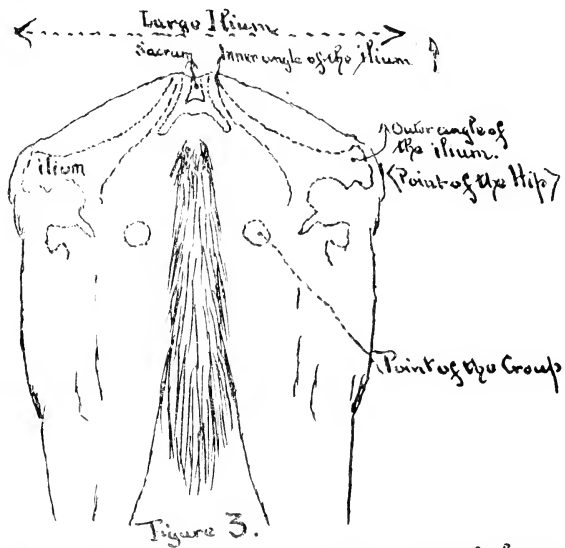 Large Ilium
Sacrum Inner angle of the ilium
Outer angle of
the ilium.
ilium
Point of the Hip
Point of the Croup
Figure 3.